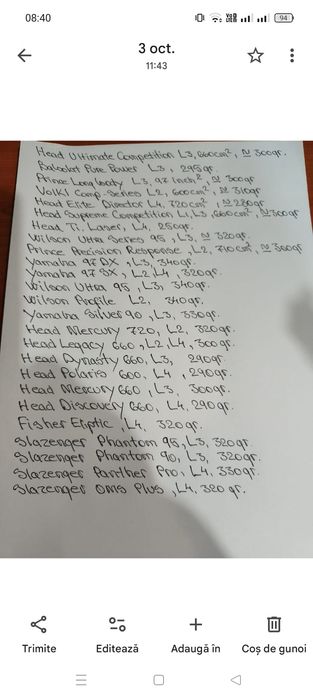 08:40
94
3 oct.
11:43
Head Ultimate Competition L3, 660cm², ≈ 300gr.
Babolat Pure Power L3, 295gr.
Prince Longbody L3, 97 inch², ≈ 300gr
Volkl Comp-Series L2, 600cm², ≈ 310gr
Head Elite Director L4, 720cm², ≈ 280gr
Head Supreme Competition L1, L3, 660cm², ≈ 300gr
Head, Ti. Laser, L4, 250gr.
Wilson Ultra Series 95, L3, ≈ 320gr.
Prince Precision Response, L2, 710cm², ≈ 300gr
Yamaha 97 DX, L3, 340gr.
Yamaha 97 SX, L2 L4, 320gr.
Wilson Ultra 95, L3, 340gr.
Wilson Profile L2, 340gr.
Yamaha Silver 90, L3, 330gr.
Head Mercury 720, L2, 320gr.
Head Legacy 660, L2 L4, 300gr.
Head Dynasty 660, L3, 290gr.
Head Polaris 600, L4, 290gr.
Head Mercury 660, L3, 300gr.
Head Discovery 660, L4, 290gr.
Fisher Eliptic, L4, 320gr.
Slazenger Phantom 95, L3, 320gr.
Slazenger Phantom 90, L3, 320gr.
Slazenger Panther Pro, L4, 330gr.
Slazenger OMS Plus, L4, 320gr.
Trimite
Editează
Adaugă în
Coș de gunoi